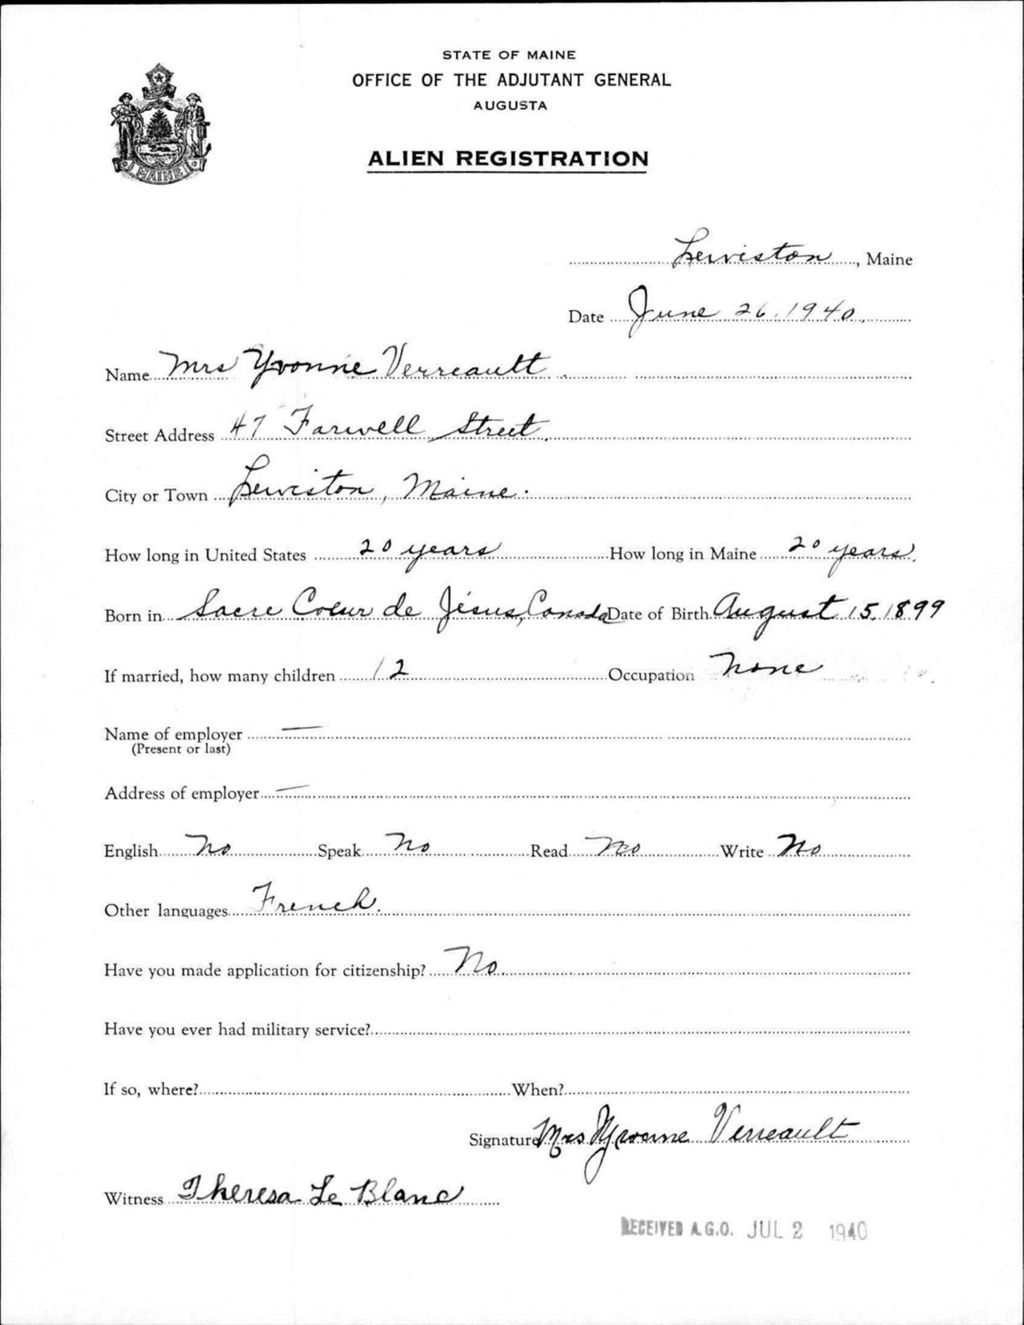 STATE OF MAINE
OFFICE OF THE ADJUTANT GENERAL
AUGUSTA
ALIEN REGISTRATION
MAINE
Lewiston, Maine
Date June 26, 1940.
Name Mrs Yvonne Verreault.
Street Address 47 Farwell Street.
City or Town Lewiston, Maine.
How long in United States 20 years How long in Maine 20 years.
Born in Sacre Coeur de Jésus, Canada Date of Birth August 15, 1899
If married, how many children 12 Occupation None
Name of employer —
(Present or last)
Address of employer —
English No Speak No Read No Write No
Other languages French.
Have you made application for citizenship? No
Have you ever had military service?
If so, where? When?
Signature Mrs Yvonne Verreault
Witness Theresa Le Blanc
RECEIVED A.G.O. JUL 2 1940